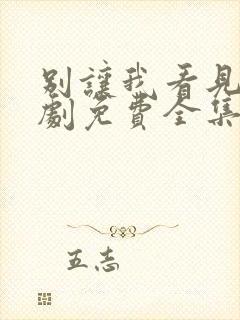 别讓我看見
劇免費全集
五志